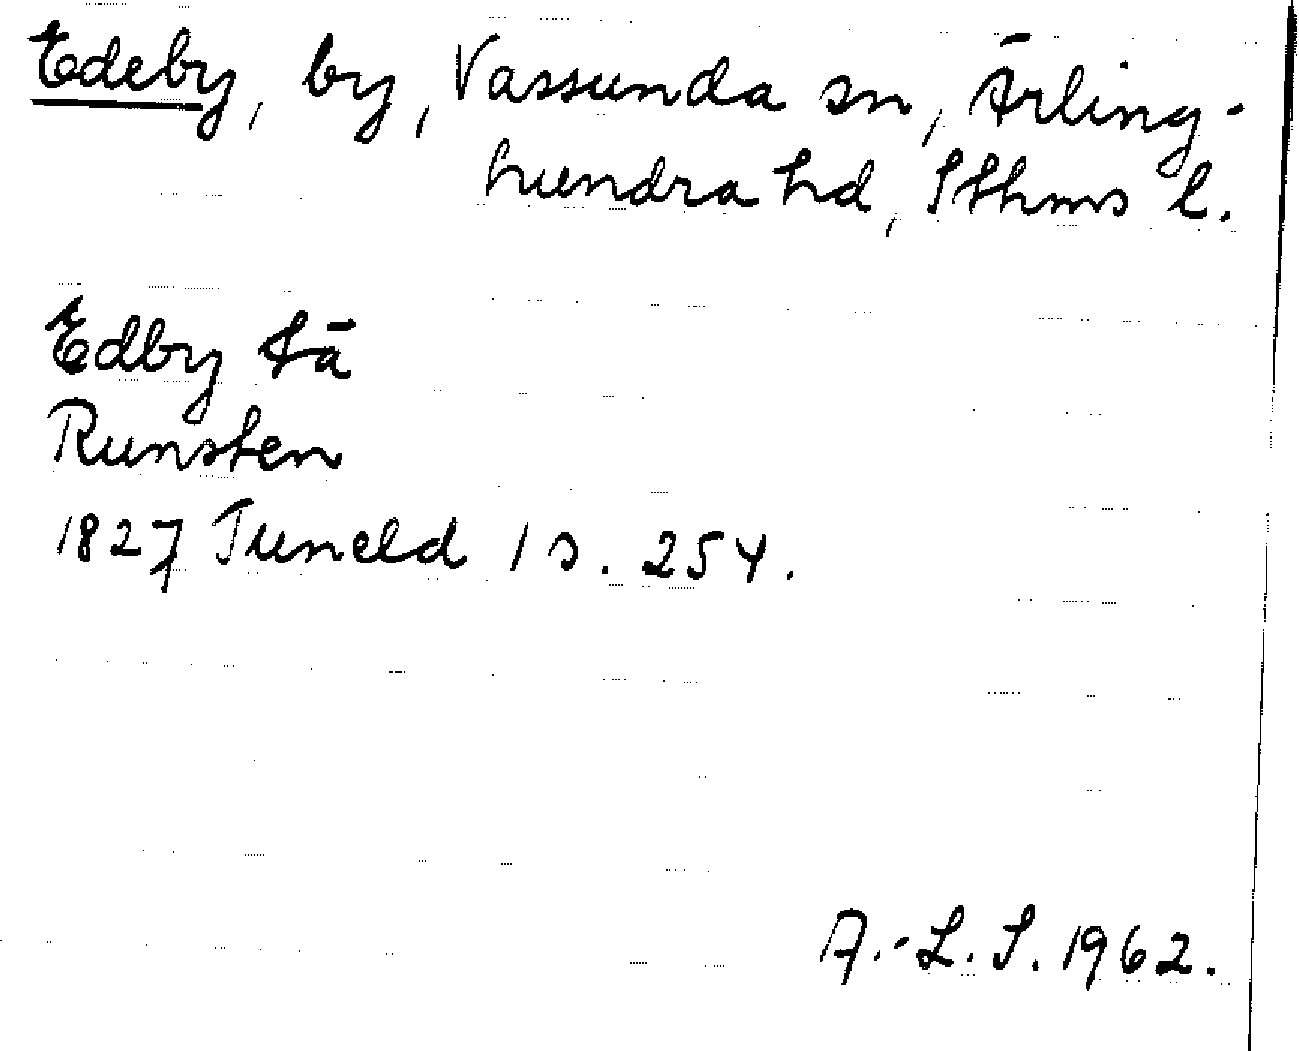 Edeby, by, Vassunda sn, Ärling-
hundra hd, Sthms l.
Edby Lä
Runsten
1827 Tuneld 1 s. 254.
A.-L. S. 1962.